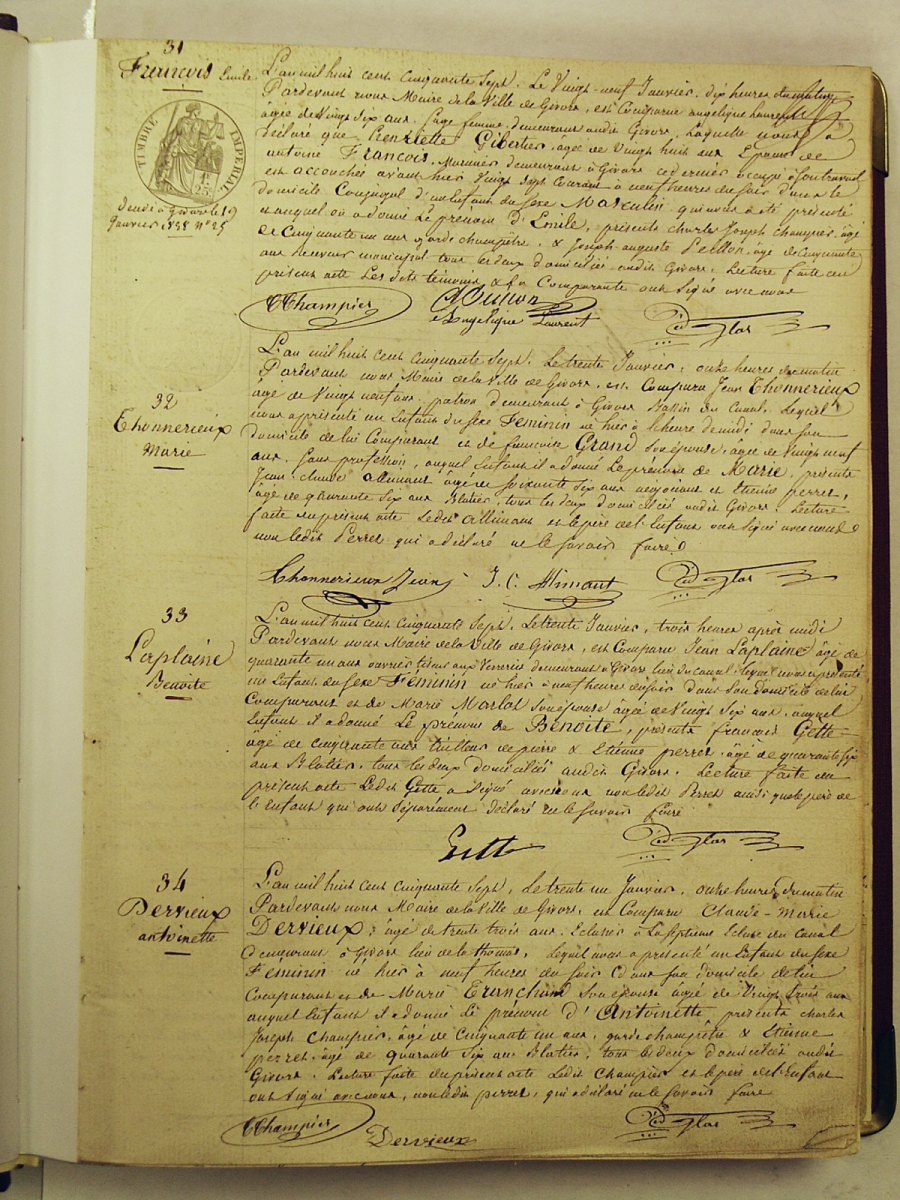 31
François Emile
TIMBRE IMPÉRIAL
L'an mil huit cent cinquante sept. Le Vingt-neuf Janvier, dix heures du matin
Pardevant nous Maire de la Ville de Givors, est Comparue angelique Laurent
âgée de Vingt Six ans, Sage femme, demeurant audit Givors, Laquelle nous a
déclaré que Henriette Gibertier, agée de Vingt huit ans Epouse de
antoine François, Marinier demeurant à Givors
est accouchée avant hier Vingt Sept Courant à neuf heures du soir dans le
domicile Conjugal d'un Enfant du Sexe Masculin qui nous a été présenté
et auquel on a donné Le prénom d'Emile, présents Charles Joseph Champier, âgé
de Cinquante un ans garde champêtre, & Joseph-auguste âgé de Cinquante
ans tous les deux domiciliés audit Givors, Lecture faite du
présent acte Les dits témoins & la Comparante ont Signé avec nous
Champier
Angelique Laurent
32
Thonnerieux
Marie
L'an mil huit cent cinquante Sept. Le trente Janvier, onze heures du matin
Pardevant nous Maire de la Ville de Givors, est Comparu Jean Thonnerieux
âgé de Vingt neuf ans, patron demeurant à Givors Bassin du Canal, Lequel
nous a présenté un Enfant du Sexe Feminin né hier à heure de midi dans son
domicile de lui Comparant et de françoise Grand Son épouse, agée de Vingt neuf
ans, Sans profession, auquel Enfant il a donné Le prénom de Marie, présents
Jean-Claude allimant âgé de Soixante Six ans négociant et Etienne perret,
âgé de quarante Six ans Blatier, tous les deux domiciliés audit Givors, Lecture
faite du présent acte Ledit allimant et le père de l'Enfant ont Signé avec nous
non ledit Perret qui a déclaré ne le Savoir faire
Thonnerieux Jean J. C. Allimant
33
Laplaine
Benoite
L'an mil huit cent cinquante Sept. Le trente Janvier, trois heures après midi
Pardevant nous Maire de la Ville de Givors, est Comparu Jean Laplaine âgé de
quarante un ans ouvrier aux Verreries demeurant à Givors lieu du canal Lequel nous a présenté
un Enfant du Sexe Féminin né hier à neuf heures du soir Dans son domicile de lui
Comparant et de Marie Marlot Son épouse agée de Vingt Six ans, auquel
Enfant il a donné Le prénom de Benoite, présents françois Gette
âgé de cinquante ans tailleur de pierre & Etienne perret, âgé de quarante Six
ans Blatier, tous les deux domiciliés audit Givors, Lecture faite du
présent acte Ledit Gette a Signé avec nous non ledit Perret ainsi que le père de
l'Enfant qui ont Séparément déclaré ne le Savoir faire
Gette
34
Dervieux
antoinette
L'an mil huit cent cinquante Sept, Le trente un Janvier, onze heures du matin
Pardevant nous Maire de la Ville de Givors, est Comparu Claude-Marie
Dervieux, âgé de trente trois ans, Eclusier à La Septieme Ecluse du Canal
demeurant à Givors lieu de la thomas, Lequel nous a présenté un Enfant du Sexe
Feminin né hier à neuf heures du Soir Dans son domicile de lui
Comparant et de Marie Son épouse âgée de Vingt trois ans
auquel Enfant il a donné Le prénom d'Antoinette, présents charles
Joseph Champier, âgé de Cinquante un ans, garde champêtre & Etienne
perret, âgé de quarante Six ans Blatier, tous les deux domiciliés audit
Givors, Lecture faite du présent acte Ledit Champier et le père de l'Enfant
ont Signé avec nous, non ledit perret, qui a déclaré ne le Savoir faire
Champier
Dervieux